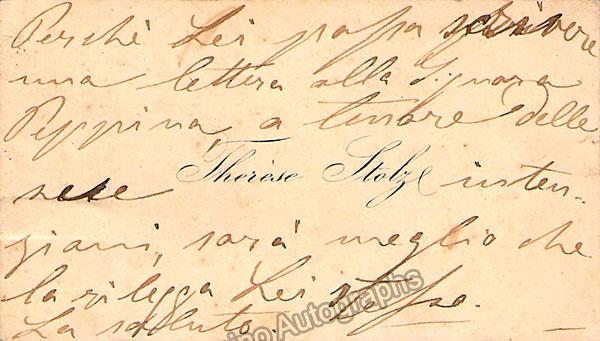 Perchè Lei possa scrivere
una lettera alla Signora
Peppina, a tenore delle
sue Therèse Stolz inten-
zioni, sarà meglio che
la rilegga Lei stesso.
La saluto.
ino Autographs